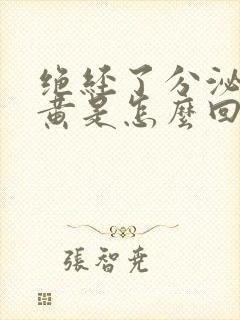 绝经了分泌
黄是怎麽回
張智尭